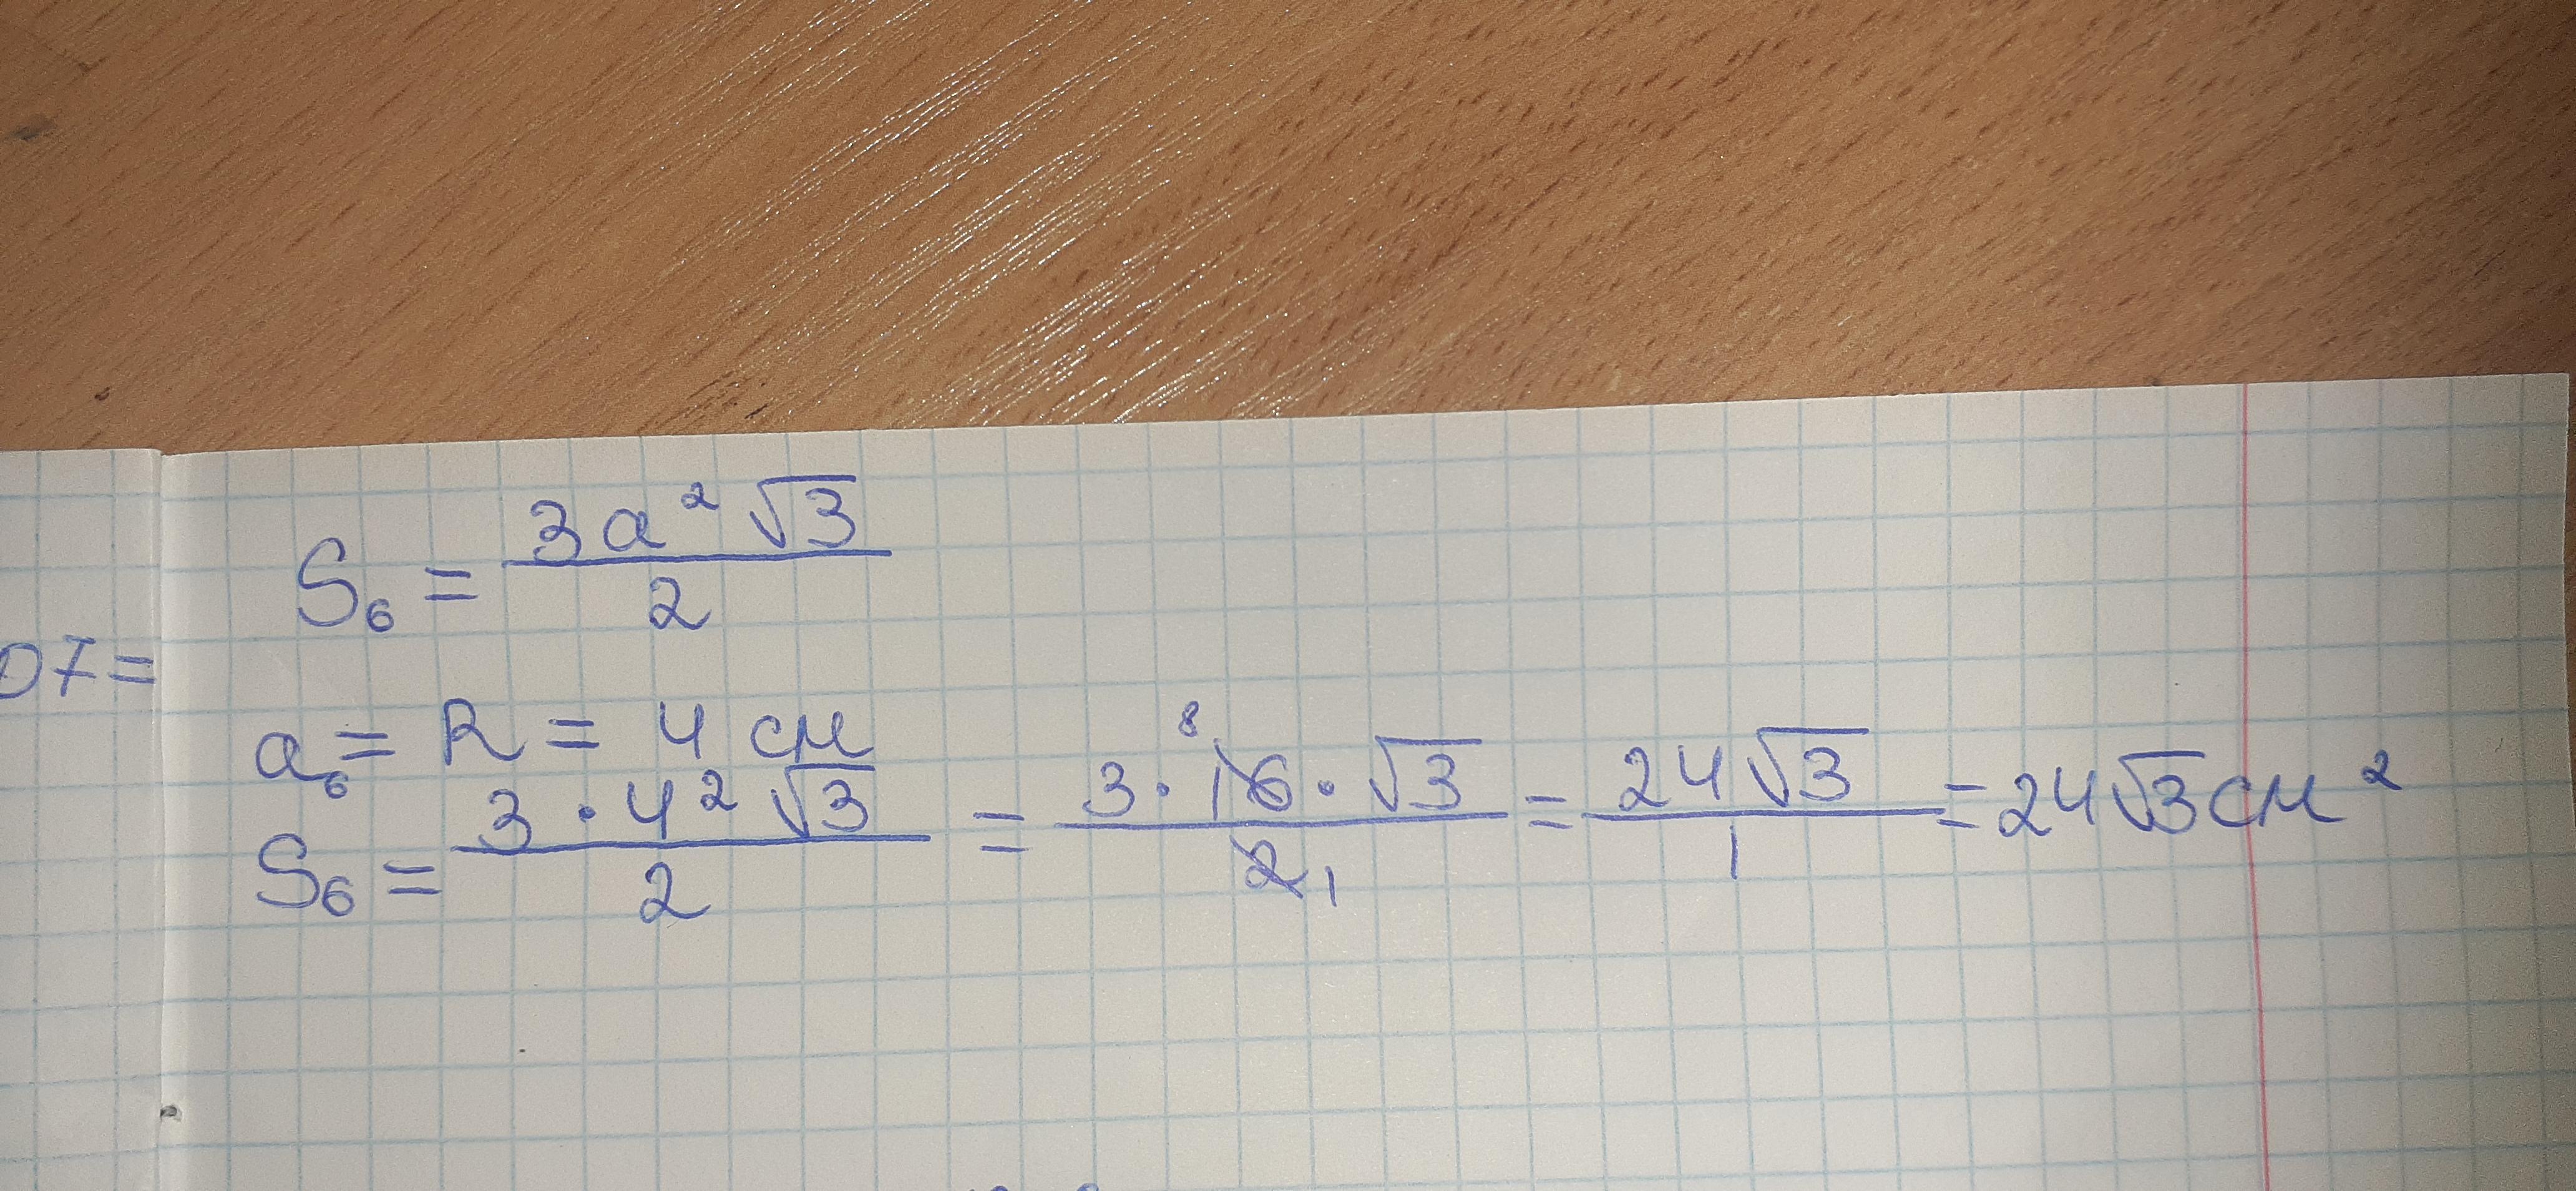 S₆ = 3a²√3 / 2
07=
a₆ = R = 4 см
S₆ = 3·4²√3 / 2 = 3·16·√3 / 2 = 24√3 / 1 = 24√3 см²
8
1